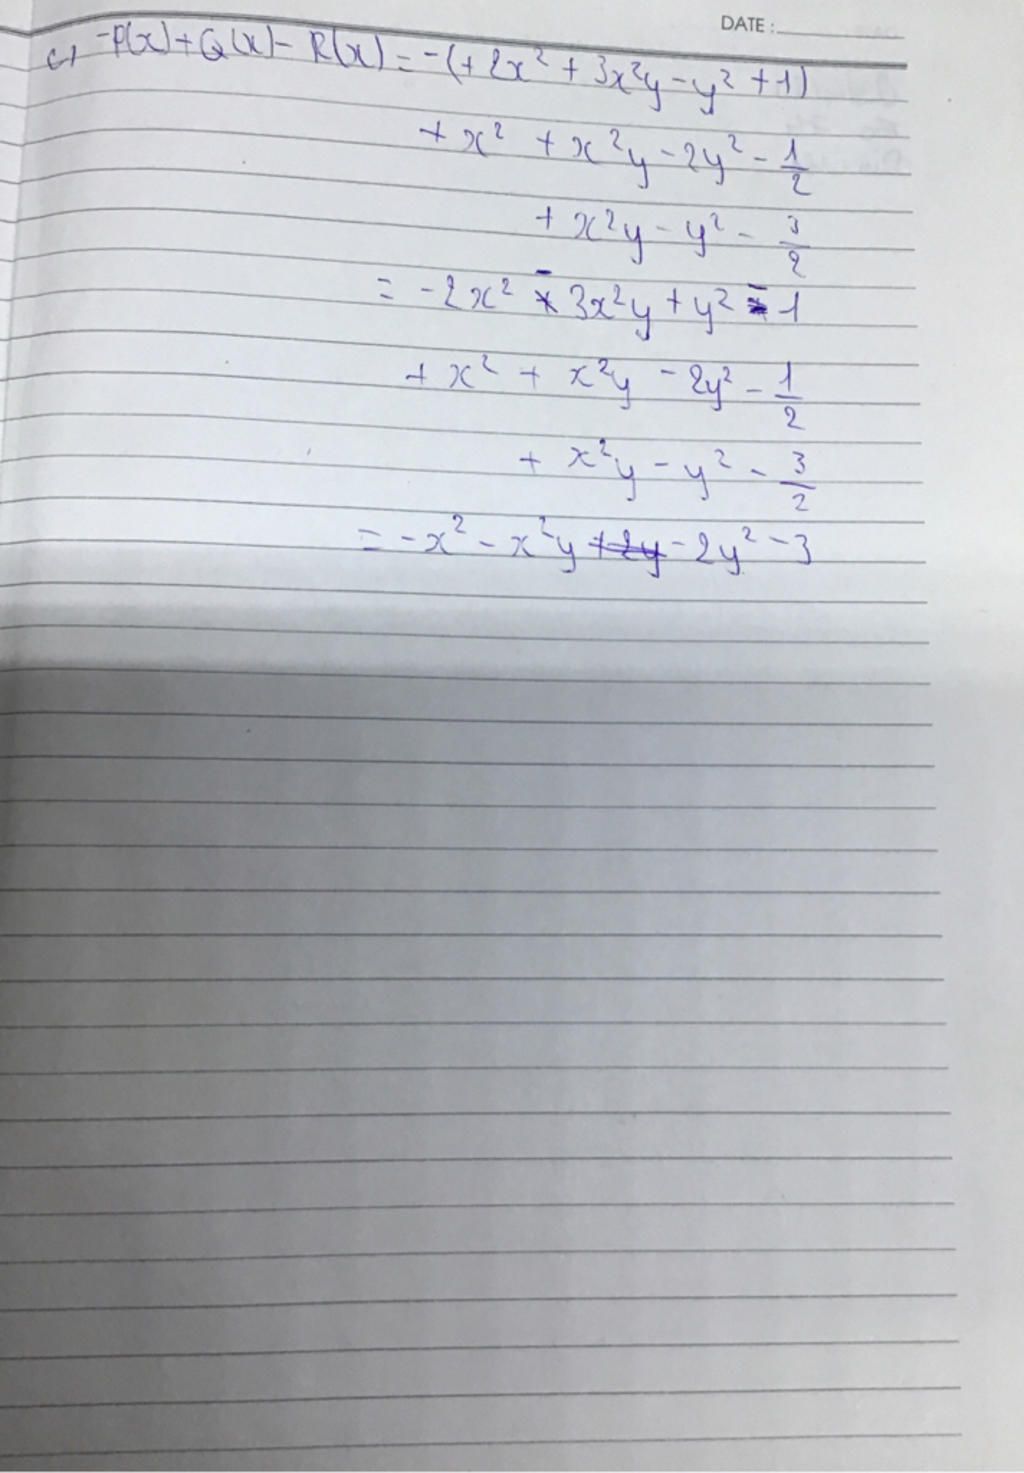 DATE :
c, -P(x) + Q(x) - R(x) = -(+2x² + 3x²y - y² + 1)
+ x² + x²y - 2y² - 1/2
+ x²y - y² - 3/2
= -2x² - 3x²y + y² - 1
+ x² + x²y - 2y² - 1/2
+ x²y - y² - 3/2
= -x² - x²y +2y - 2y² - 3